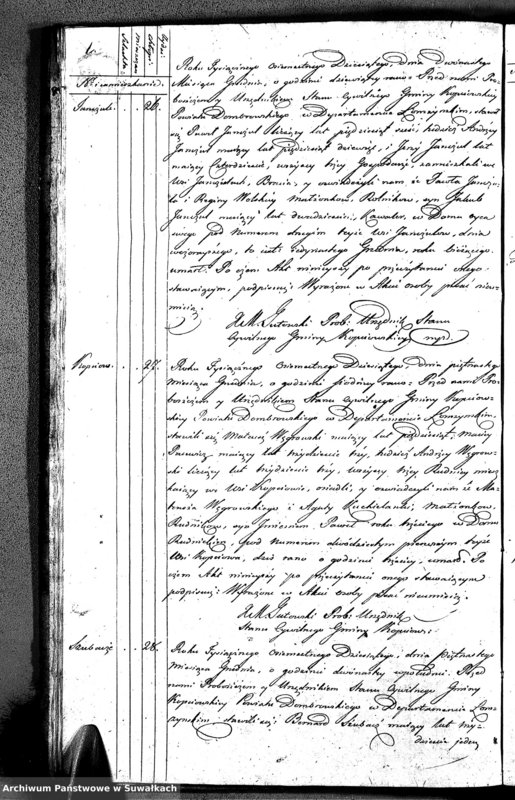 6
Roku Tysiącznego Ośmsetnego Dziesiątego, dnia dwunastego
Miesiąca Grudnia, o godzinie dziewiątej rano. Przed nami Pro-
boszczem y Urzędnikiem Stanu Cywilnego Gminy Kopciowskiej
Powiatu Dombrowskiego w Departamencie Łomżyńskim, stawi
się Paweł Janczul liczący lat pięćdziesiąt sześć, tudzież Andrzej
Janczul maiący lat pięćdziesiąt dziewięć, i Jerzy Janczul lat
maiący czterdzieście, wszyscy trzej Gospodarze, zamieszkali we
Wsi Janczulach, y oświadczyli nam iż Pawła Janczu-
la i Reginy Wolskiey małżonków, Rolników, syn Jakub
Janczul maiący lat dwadzieścia, Kawaler, w Domu oyca
swego pod Numerem drugim tejże Wsi Janczulów, dnia
wczorayszego, to iest: Jedynastego Grudnia, roku bieżącego
umarł. Po czem Akt ninieyszy po przeczytaniu onego
stawaiącym, podpisuię: Wyrażone w Akcie osoby pisać nieu-
mieią.
X. M. Gutowski Prob: Urzędnik Stanu
Cywilnego Gminy Kopciowskiey mp.
Janczule . . . 26.
Kopciow. . . 27.
Roku Tysiącznego Ośmsetnego Dziesiątego, dnia piętnastego
miesiąca Grudnia, o godzinie siódmey rano. Przed nami Pro-
boszczem y Urzędnikiem Stanu Cywilnego Gminy Kopciow-
skiey Powiatu Dombrowskiego w Departamencie Łomżyńskim,
stawił się Mateusz Węgrowski maiący lat pięćdziesiąt,
maiący lat trzydzieście trzy, tudzież Andrzey Węgrow-
ski liczący lat trzydzieście trzy, wszyscy trzej Rudnicy miesz-
kaiący we Wsi Kopciowie, osiedli, y oświadczyli nam że Ma-
teusza Węgrowskiego i Agaty małżonków,
Rudników, syn imieniem Paweł roku trzeciego w Domu
Rudnickim, pod Numerem dwódziestym pierwszym tejże
Wsi Kopciowa, dziś rano o godzinie trzeciey, umarł. Po
czem Akt ninieyszy po przeczytaniu onego stawaiącym
podpisuię: Wyrażone w Akcie osoby pisać nieumieią.
X. M. Gutowski Prob: Urzędnik
Stanu Cywilnego Gminy Kopciow:
Szubacz . . 28.
Roku Tysiącznego Ośmsetnego Dziesiątego, dnia piętnastego
miesiąca Grudnia, o godzinie dwunastey w południe. Przed
nami Proboszczem y Urzędnikiem Stanu Cywilnego Gminy
Kopciowskiey Powiatu Dombrowskiego w Departamencie Łom-
żyńskim stawił się: Bernard Szubacz maiący lat trzy-
dzieście jeden
Archiwum Państwowe w Suwałkach